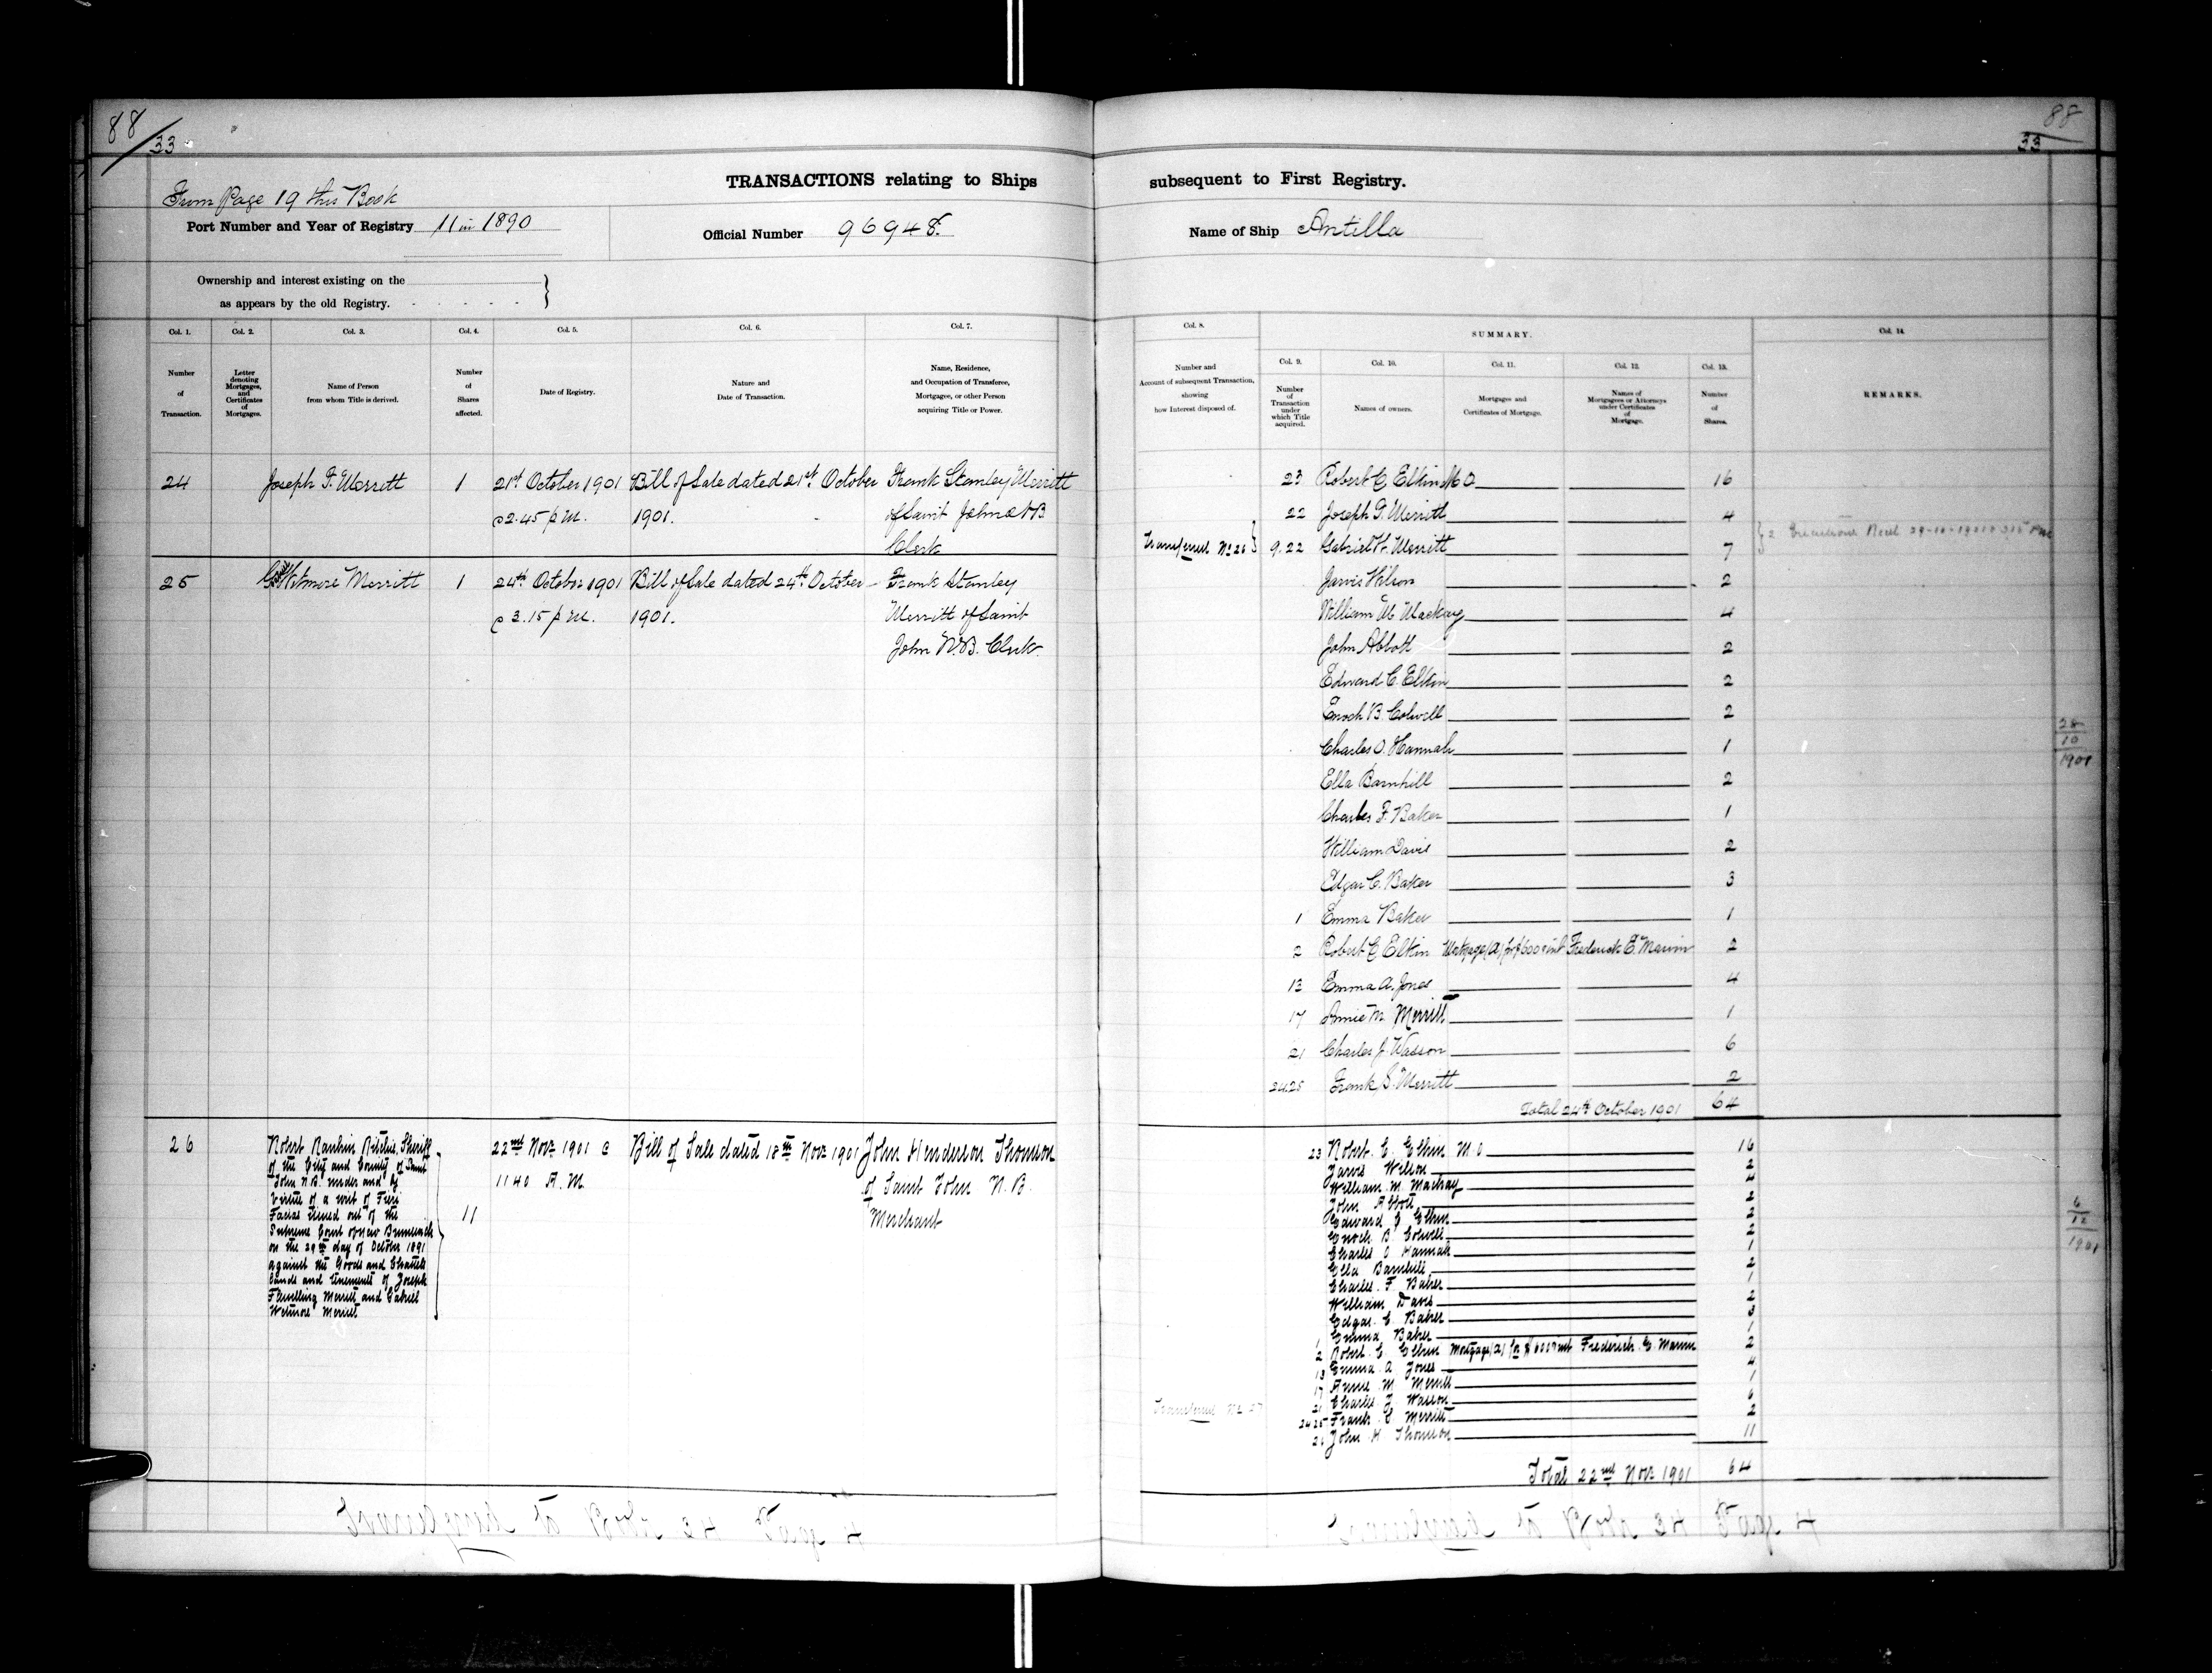 88
33
88
33
TRANSACTIONS relating to Ships subsequent to First Registry.
From Page 19 this Book
Port Number and Year of Registry 11 in 1890
Official Number 96948.
Name of Ship Antilla
Ownership and interest existing on the
as appears by the old Registry.
Col. 1. Col. 2. Col. 3. Col. 4. Col. 5. Col. 6. Col. 7.
Number of Transaction.
Letter denoting Mortgages, and Certificates of Mortgages.
Name of Person from whom Title is derived.
Number of Shares affected.
Date of Registry.
Nature and Date of Transaction.
Name, Residence, and Occupation of Transferee, Mortgagee, or other Person acquiring Title or Power.
24 Joseph F. Merritt 1 21st October 1901 Bill of Sale dated 21st October Frank Stanley Merritt
@ 2.45 p m. 1901. of Saint John N B.
Clerk
25 G. Wetmore Merritt 1 24th October 1901 Bill of Sale dated 24th October Frank Stanley
@ 3.15 p m. 1901. Merritt of Saint
John N.B. Clerk.
26 Robert Rankin Ritchie, Sheriff 22nd Novr 1901 @ Bill of Sale dated 18th Novr 1901 John Henderson Thomson
of the City and County of Saint 11 40 A.M. of Saint John N.B.
John N.B. under and by Merchant
virtue of a writ of Fieri
Facias issued out of the 11
Supreme Court of New Brunswick
on the 29th day of October 1891
against the Goods and Chattels
Lands and tenements of Joseph
Flewelling Merritt and Gabriel
Wetmore Merritt
Col. 8.
Number and Account of subsequent Transaction, showing how Interest disposed of.
SUMMARY.
Col. 9. Col. 10. Col. 11. Col. 12. Col. 13. Col. 14.
Number of Transaction under which Title acquired.
Names of owners.
Mortgages and Certificates of Mortgage.
Names of Mortgagees or Attorneys under Certificates of Mortgage.
Number of Shares.
REMARKS.
23 Robert C Elkin M O 16
22 Joseph F. Merritt 4
Transferred No 26 9.22 Gabriel W. Merritt 7
Jarvis Wilson 2
William M Mackay 4
John Abbott 2
Edward C. Elkin 2
Enoch B. Colwell 2
Charles O. Hannah 1
Ella Barnhill 2
Charles F. Baker 1
William Davis 2
Edgar C. Baker 3
1 Emma Baker 1
2 Robert C Elkin Mortgage (A) for $600 & int Frederick E. 2
13 Emma A. Jones 4
17 Annie M. Merritt 1
21 Charles J. Wasson 6
24.25 Frank S. Merritt 2
Total 24th October 1901 64
28
10
1901
23 Robert C. Elkin M.O 16
Jarvis Wilson 2
William M. Mackay 4
John Abbott 2
Edward C Elkin 2
Enoch B. Colwell 2
Charles O Hannah 1
Ella Barnhill 2
Charles F. Baker 1
William Davis 2
Edgar C. Baker 3
1 Emma Baker 1
2 Robert C. Elkin Mortgage (A) for $600 & int Frederick E. 2
13 Emma A Jones 4
17 Annie M Merritt 1
21 Charles J Wasson 6
24 25 Frank S Merritt 2
Transferred No 27 26 John H Thomson 11
Total 22nd Novr 1901 64
6
12
1901